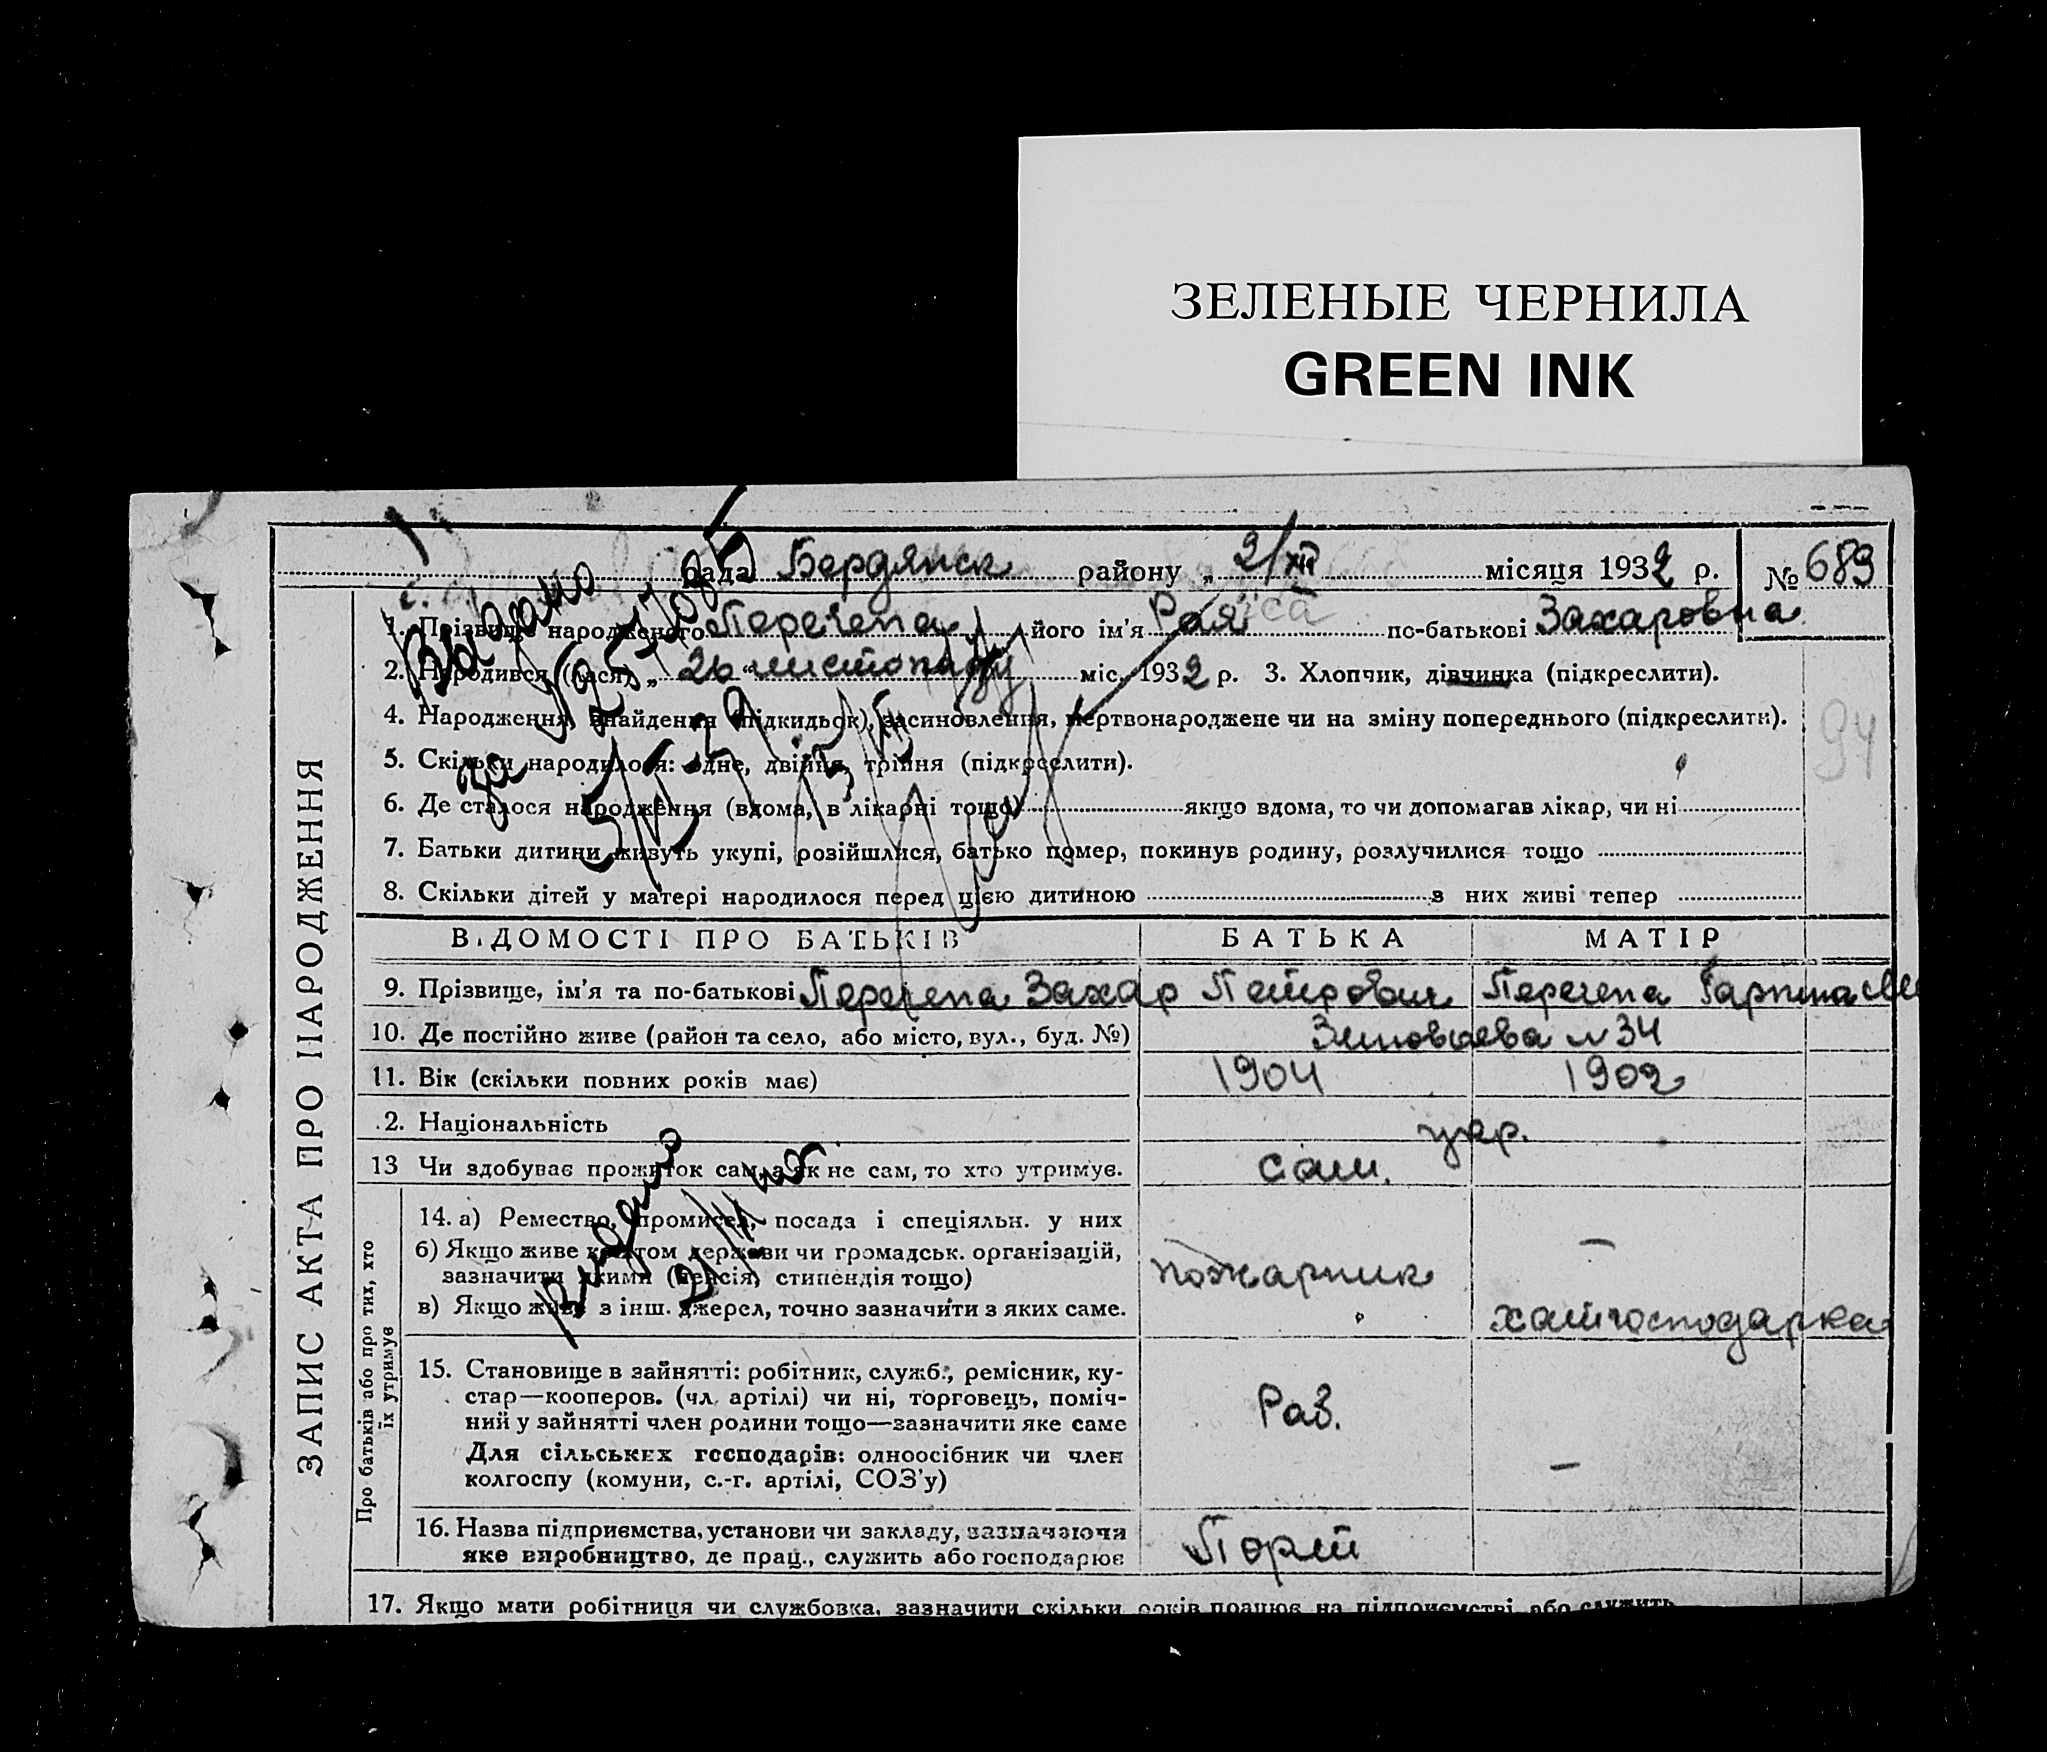 ЗЕЛЕНЫЕ ЧЕРНИЛА
GREEN INK
рада Бердянск району „ 2/XII місяця 1932 р. № 689
1. Прізвище народженого Перечепа його ім'я Рая іса по-батькові Захаровна
2. Народився (лася) „ 26 “ листопаду міс. 1932 р. 3. Хлопчик, дівчинка (підкреслити).
4. Народження, знайдення (підкидьок), засиновлення, мертвонароджене чи на зміну попереднього (підкреслити).
94
5. Скільки народилося: одне, двійня, трійня (підкреслити).
6. Де сталося народження (вдома, в лікарні тощо) якщо вдома, то чи допомагав лікар, чи ні
7. Батьки дитини живуть укупі, розійшлися, батько помер, покинув родину, розлучилися тощо
8. Скільки дітей у матері народилося перед цією дитиною з них живі тепер
Видано
ЗАПИС АКТА ПРО НАРОДЖЕННЯ
ВІДОМОСТІ ПРО БАТЬКІВ БАТЬКА МАТІР
9. Прізвище, ім'я та по-батькові Перечепа Захар Петрович Перечепа Гарпина
10. Де постійно живе (район та село, або місто, вул., буд. №) Зиновьева № 34
11. Вік (скільки повних років має) 1904 1902
.2. Національність укр.
13 Чи здобуває прожиток сам, а як не сам, то хто утримує. сам.
Про батьків або про тих, хто
їх утримує
14. а) Ремество, промисел, посада і спеціяльн. у них
б) Якщо живе коштом держави чи громадськ. організацій,
зазначити якими (пенсія, стипендія тощо) пожарник —
в) Якщо живе з інш. джерел, точно зазначити з яких саме. хатгосподарка
Видано
15. Становище в зайнятті: робітник, служб., ремісник, ку-
стар—кооперов. (чл. артілі) чи ні, торговець, поміч-
ний у зайнятті член родини тощо—зазначити яке саме Раб.
Для сільських господарів: одноосібник чи член
колгоспу (комуни, с.-г. артілі, СОЗ'у) —
16. Назва підприємства, установи чи закладу, зазначаючи
яке виробництво, де прац., служить або господарює Порт
17. Якщо мати робітниця чи службовка, зазначити скільки років працює на підприємстві або служить